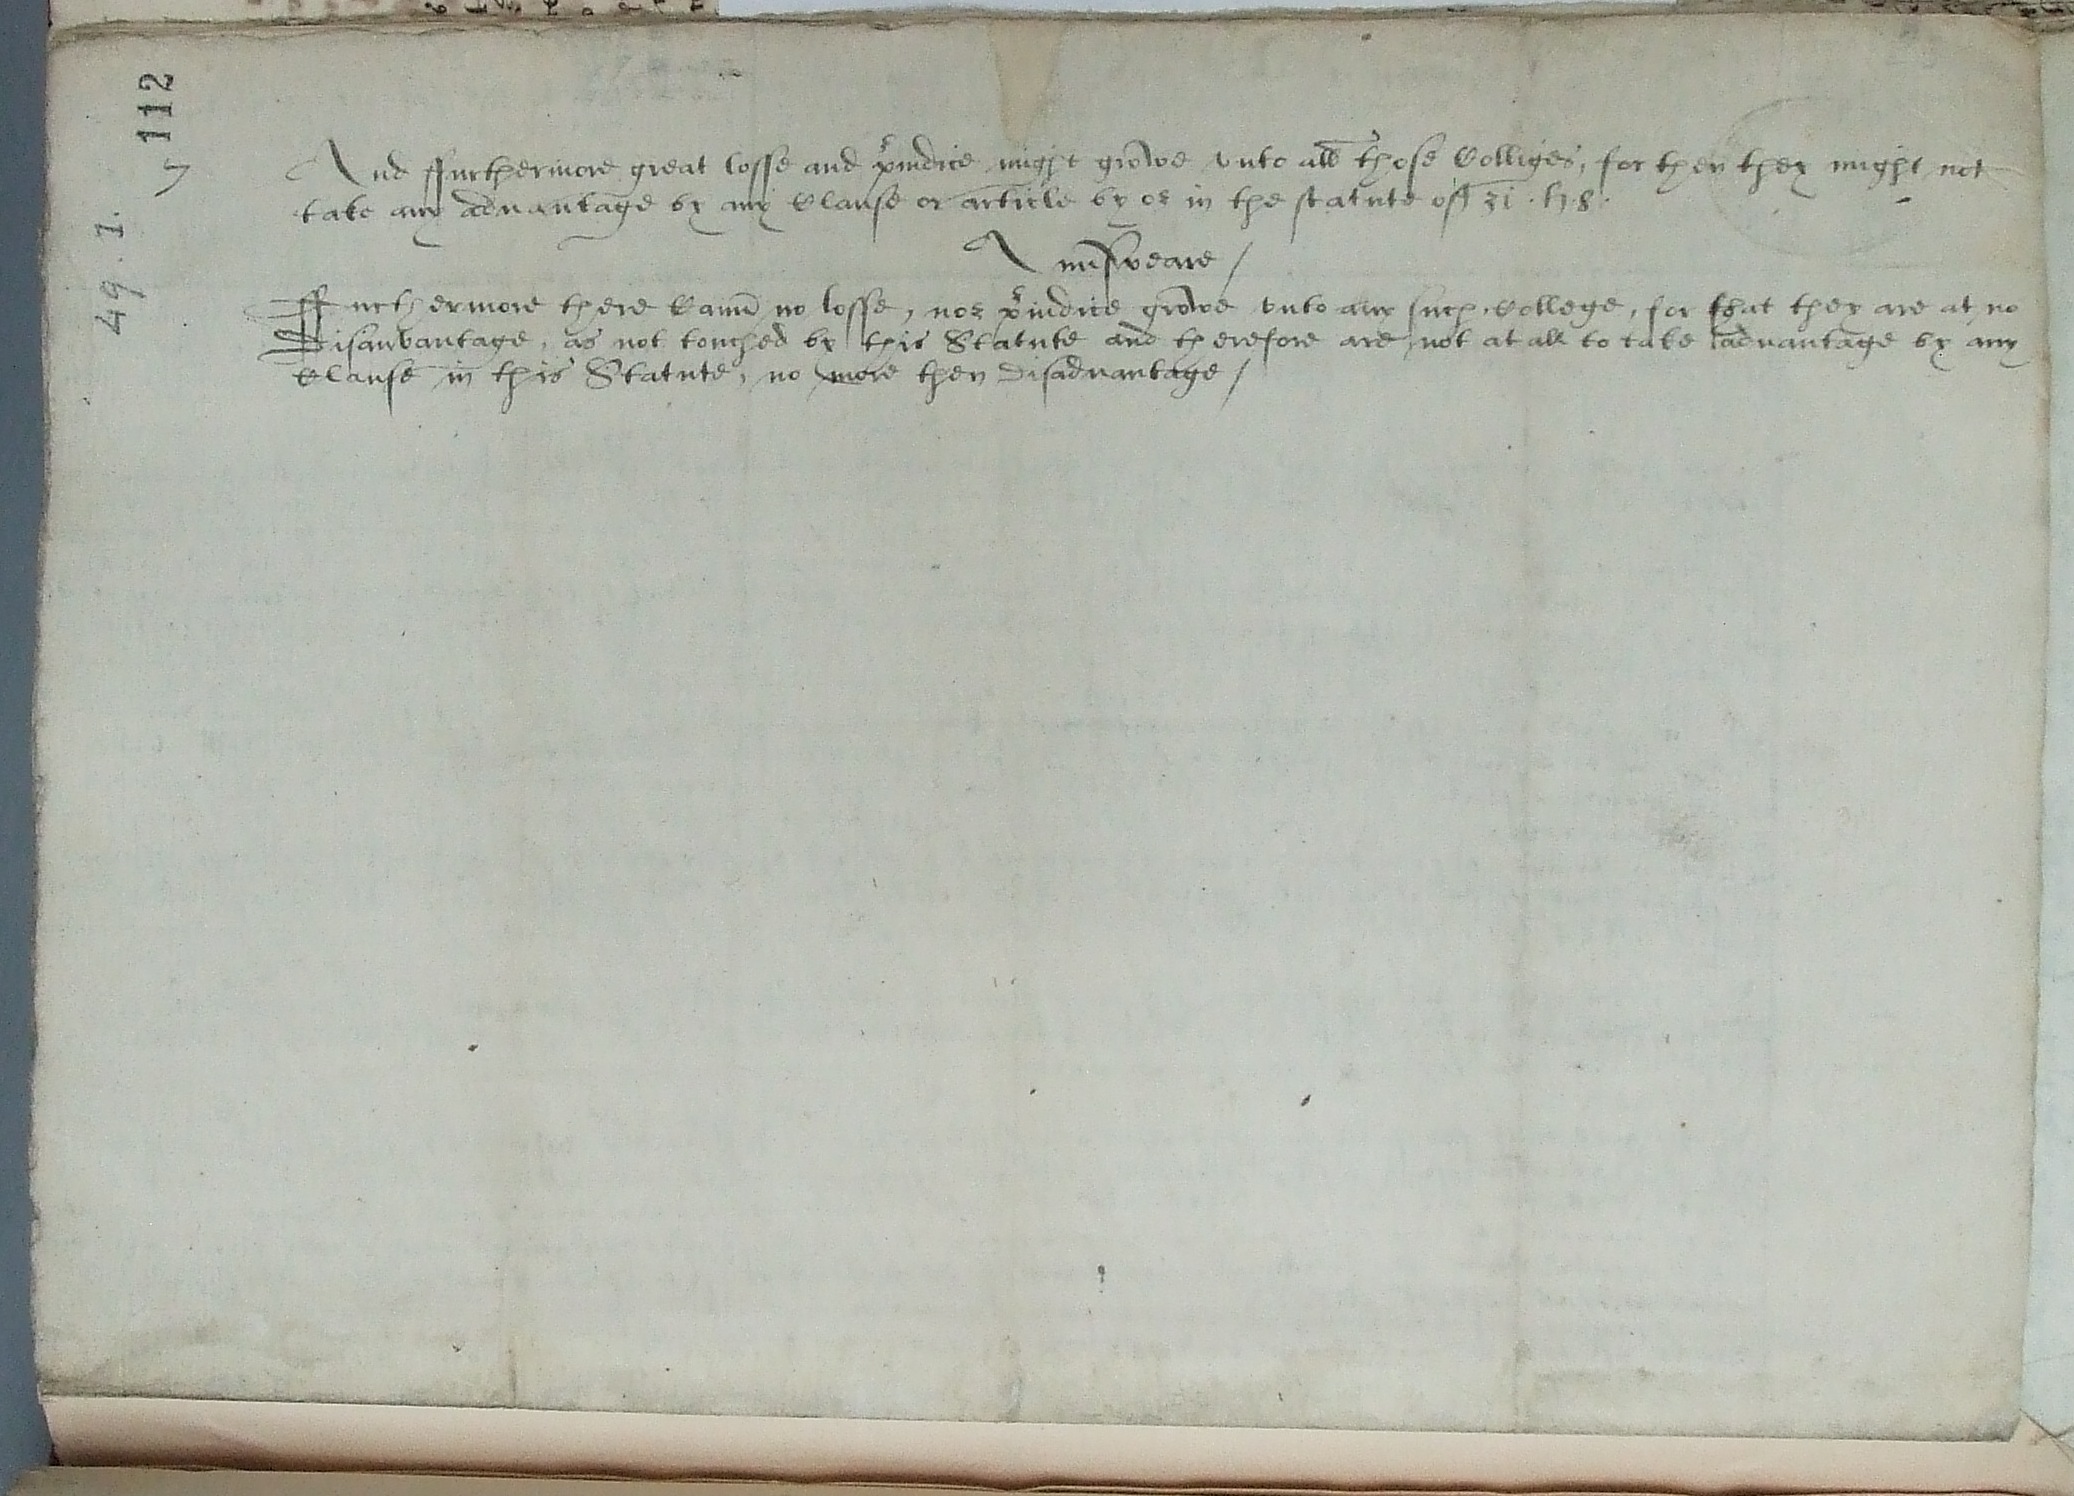 112
7
49. 1.
And ffurthermore great losse and p̃iudice might growe vnto all those Colliges, for then they might not
take any aduantage by any Clause or article by or in the statute off 31 . h . 8 .
Aunsweare /
Ffurthermore there cann̄ no losse, nor p̃iudice growe vnto any such College, for that they are at no
Disauvantage, as not touched by this Statute and therefore are not at all to take aduantage by any
Clause in this Statute, no more then disaduantage /